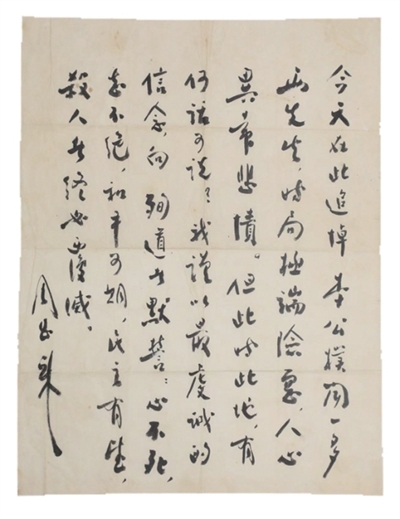 今天在此追悼李公樸聞一多
两先生,时局極端險惡,人心
異常悲憤。但此时此地,有
何話可說?我謹以最虔誠的
信念向殉道者默誓:心不死,
志不绝,和平可期,民主有望,
殺人者终必覆滅。
周恩来